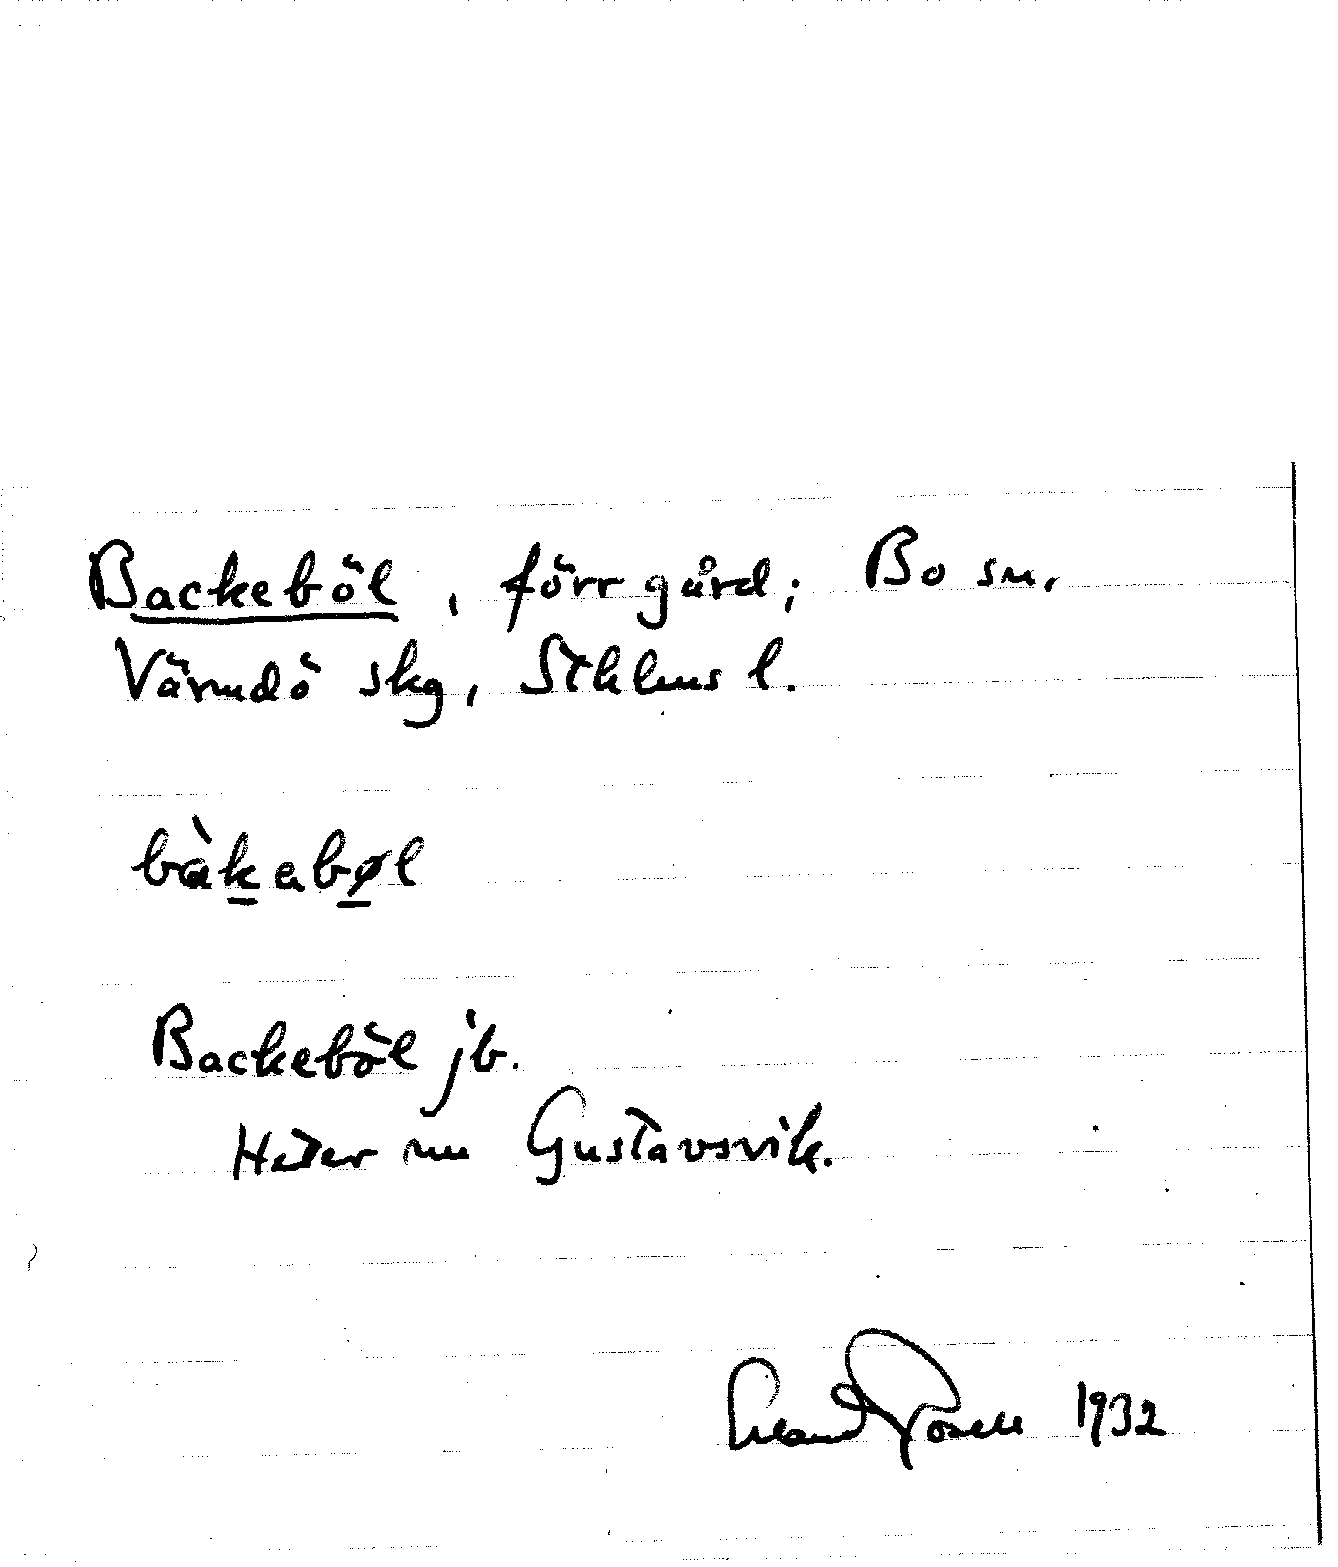 Backeböl, förr gård; Bo sn,
Värmdö skg, Sthlms l.
bàkabøl
Backeböl jb.
Heter nu Gustavsvik.
Erland Rosell 1932